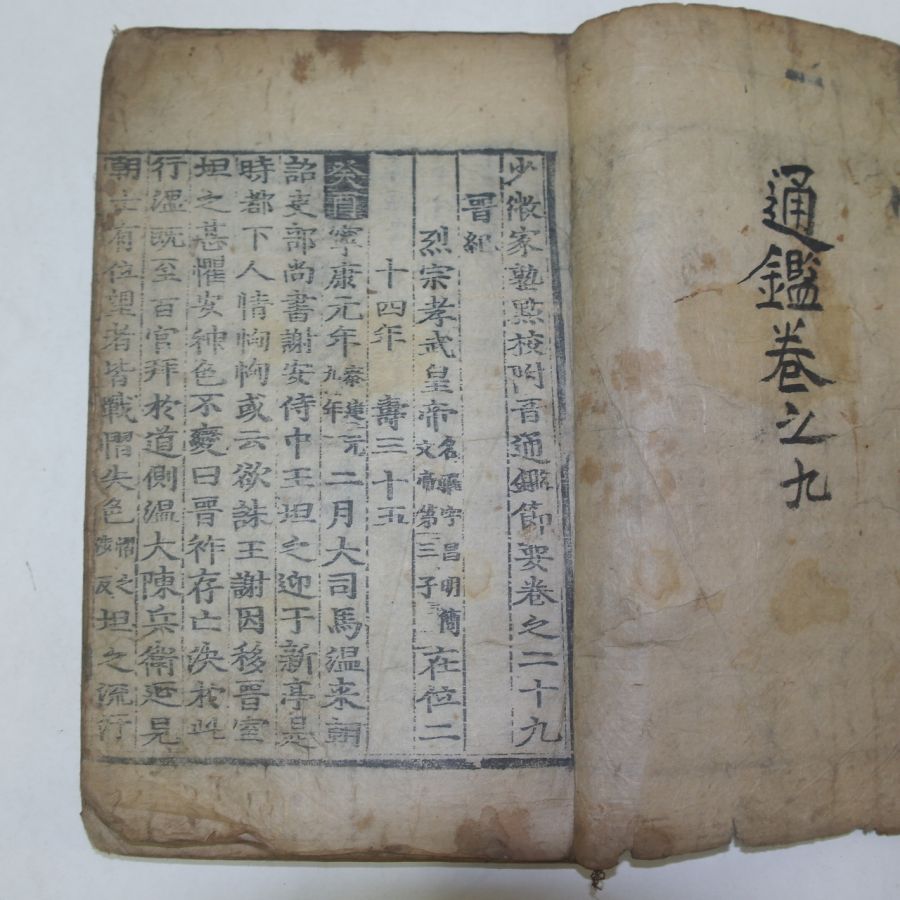 通鑑卷之九
少微家塾點校附音通鑑節要卷之二十九
晋紀
烈宗孝武皇帝名曜字昌明簡文帝第三子在位二
十四年 壽三十五
癸酉寧康元年秦建元九年二月大司馬温来朝
詔吏部尚書謝安侍中王坦之迎于新亭是
時都下人情恟恟或云欲誅王謝因移晋室
坦之甚懼安神色不變曰晋祚存亡决於此
行温既至百官拜於道側温大陳兵衛延見
朝士有位望者皆戰慴失色慴之涉反坦之流汗